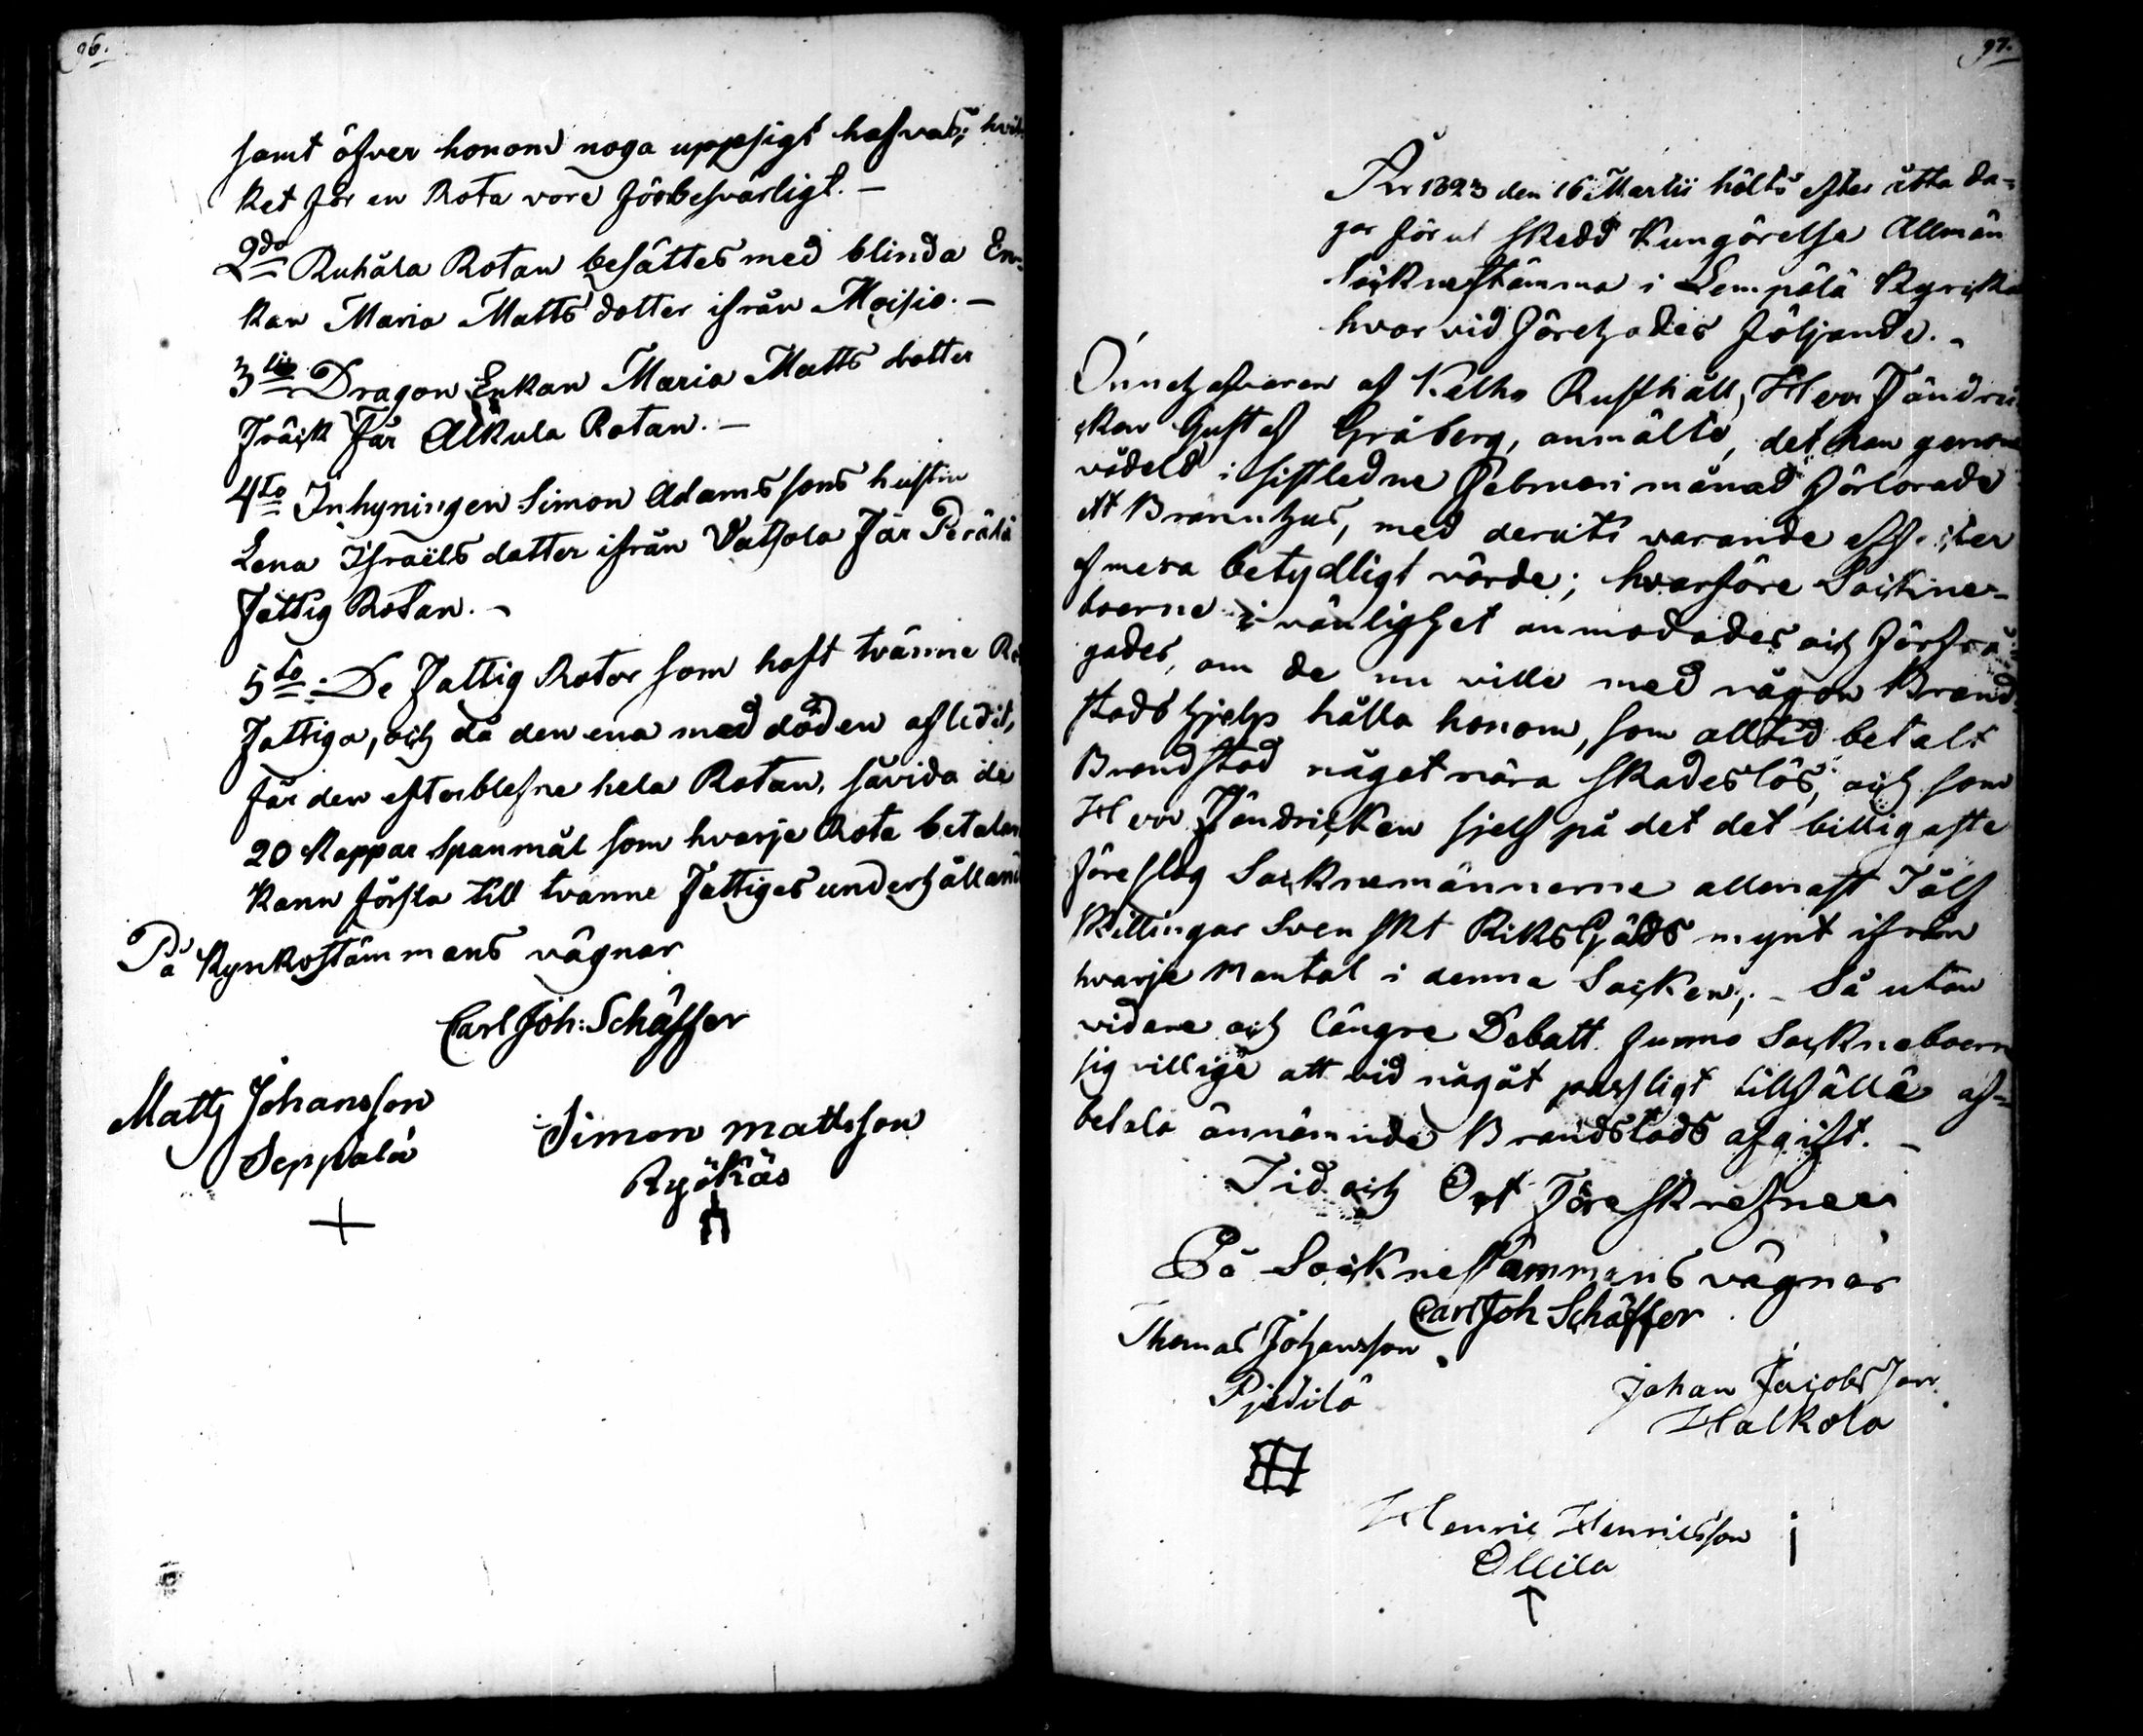 96.
samt öfver honom noga uppsigt hafvas; hvil-
ket för en Rota vore förbesvärligt. —
2do Ruhala Rotan besattes med blinda En-
kan Maria Matts dotter ifrån Moisio. —
3tio Dragon Enkan Maria Matts dotter
Träsk får Alkula Rotan. —
4to Inhyningen Simon Adamssons hustru
Lena Israëls dotter ifrån Vatsola får Perälä
Fattig Rotan. —
5to De Fattig Rotor som haft tvänne
Fattiga, och då den ena med döden aflidit,
får den efterblefne hela Rotan, såvida de
20 Kappar Spanmål som hvarje Rota betalar
kann förslå till tvanne Fattiges underhålland
På Kyrkostämmans vägnar
Carl Joh: Schäffer
Matts Johansson
Seppälä
Simon mattsson
Ryökäs
97.
År 1823 den 16 Martii hölts efter åtta da-
gar förut skedd Kungörelse Allmän
Socknestämma i Lempälä Kyrcka
hvarvid förehades följande. —
Innehafvaren af Kelho Rusthåll, Herr Fändric
ken Gustaf Gråberg, anmälte, det han genom
vådeld i sistledne Februari månad förlorade
ett Brännhus, med deruti varande effecter
af mera betydligt värde; hvarföre Sockne-
boerne i vänlighet anmodades och förfrå-
gades, om de nu ville med någon Brand
stods hjelp hålla honom, som alltid betalt
Brandstod något nära skadeslös, och som
Herr Fändricken sjelf på det det billigaste
föreslog Socknemännerne allenast Tålf
skillingar Svenskt RiksGälds mynt ifrån
hvarje Mantal i denna Socken; — Så utan
vidare och längre Debatt funno Sockneboern
sig villige att vid något passligt tillfälle af-
betala ännämnde Brandstods afgift. —
Tid och Ort Föreskrefne
På Socknestämmans vägnar
Carl Joh Schäffer
Thomas Johansson
Johan Jacobsson
Halkola
Henric Henricsson
Ollila